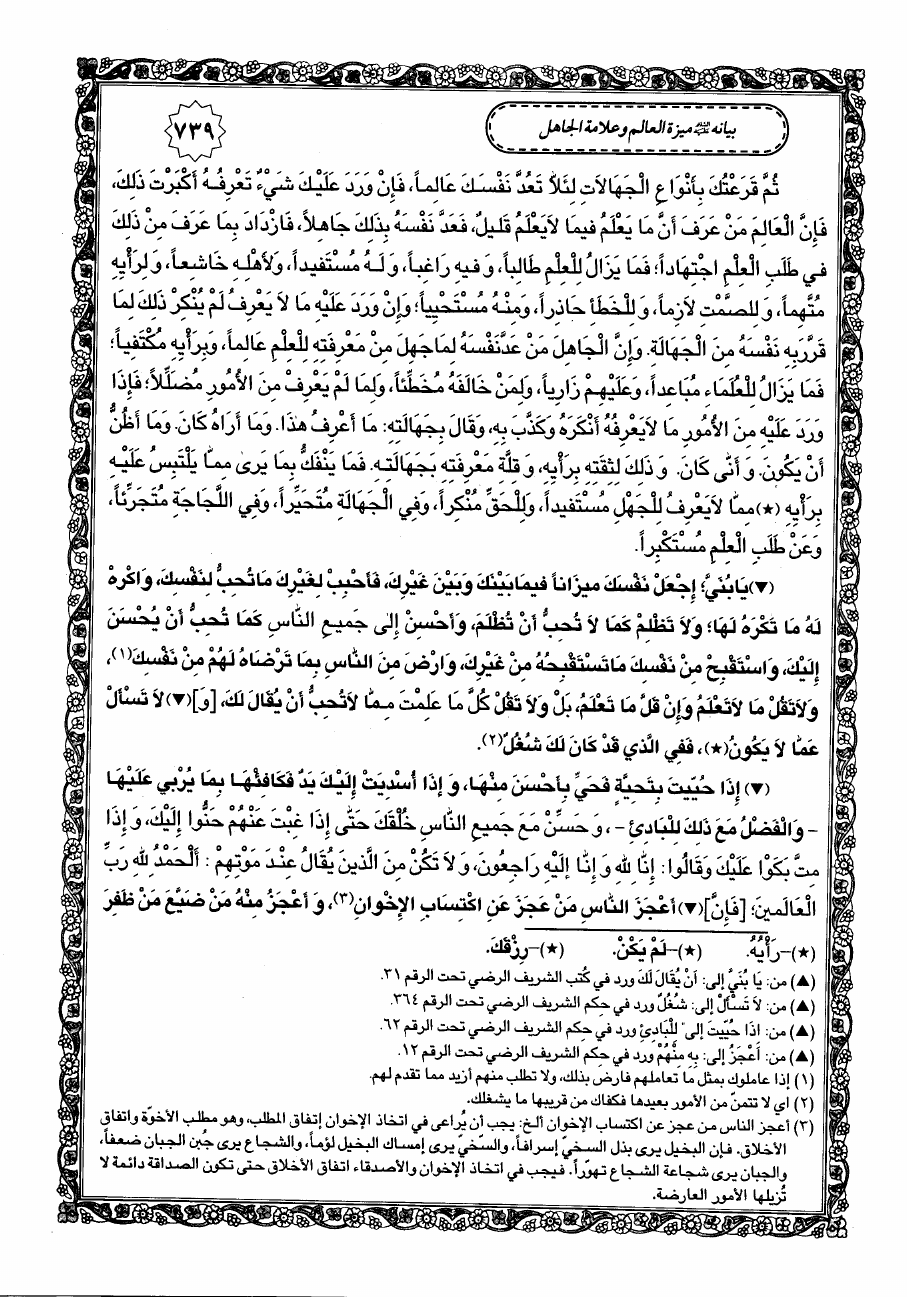 بيانه عليه السلام ميزة العالم وعلامة الجاهل
٧٣٩
ثُمَّ قَرَعْتُكَ بِأَنْوَاعِ الْجَهَالَاتِ لِئَلاَّ تَعُدَّ نَفْسَكَ عَالِماً، فَإِنْ وَرَدَ عَلَيْكَ شَيْءٌ تَعْرِفُهُ أَكْبَرْتَ ذَلِكَ،
فَإِنَّ الْعَالِمَ مَنْ عَرَفَ أَنَّ مَا يَعْلَمُ فيمَا لاَيَعْلَمُ قَليلٌ، فَعَدَّ نَفْسَهُ بِذَلِكَ جَاهِلاً، فَازْدَادَ بِمَا عَرَفَ مِنْ ذَلِكَ
في طَلَبِ الْعِلْمِ اجْتِهَاداً؛ فَمَا يَزَالُ لِلْعِلْمِ طَالِباً، وَ فيهِ رَاغِباً، وَ لَهُ مُسْتَفيداً، وَلأَهْلِهِ خَاشِعاً، وَ لِرَأْيِهِ
مُتَّهِماً، وَ لِلصَّمْتِ لاَزِماً، وَ لِلْخَطَأِ حَاذِراً، وَمِنْهُ مُسْتَحْيِياً؛ وَإِنْ وَرَدَ عَلَيْهِ مَا لاَ يَعْرِفُ لَمْ يُنْكِرْ ذَلِكَ لِمَا
قَرَّرَ بِهِ نَفْسَهُ مِنَ الْجَهَالَةِ. وَإِنَّ الْجَاهِلَ مَنْ عَدَّنَفْسَهُ لِمَاجَهِلَ مِنْ مَعْرِفَتِهِ لِلْعِلْمِ عَالِماً، وَبِرَأْيِهِ مُكْتَفِياً؛
فَمَا يَزَالُ لِلْعُلَمَاءِ مُبَاعِداً، وَعَلَيْهِمْ زَارِياً، وَلِمَنْ خَالَفَهُ مُخَطِّئاً، وَلِمَا لَمْ يَعْرِفْ مِنَ الأُمُورِ مُضَلِّلاً؛ فَإِذَا
وَرَدَ عَلَيْهِ مِنَ الأُمُورِ مَا لاَيَعْرِفُهُ أَنْكَرَهُ وَكَذَّبَ بِهِ، وَقَالَ بِجَهَالَتِهِ: مَا أَعْرِفُ هٰذَا. وَمَا أَرَاهُ كَانَ. وَمَا أَظُنُّ
أَنْ يَكُونَ. وَ أَنّٰى كَانَ. وَ ذَلِكَ لِثِقَتِهِ بِرَأْيِهِ، وَ قِلَّةِ مَعْرِفَتِهِ بِجَهَالَتِهِ. فَمَا يَنْفَكُّ بِمَا يَرىٰ مِمّٰا يَلْتَبِسُ عَلَيْهِ
بِرَأْيِهِ (★)مِمّٰا لاَيَعْرِفُ لِلْجَهْلِ مُسْتَفيداً، وَلِلْحَقِّ مُنْكِراً، وَفِي الْجَهَالَةِ مُتَحَيِّراً، وَفِي اللَّجَاجَةِ مُتَجَرِّئاً،
وَعَنْ طَلَبِ الْعِلْمِ مُسْتَكْبِراً.
(▼)يَابُنَيَّ؛ إِجْعَلْ نَفْسَكَ ميزَاناً فيمَابَيْنَكَ وَبَيْنَ غَيْرِكَ، فَأَحْبِبْ لِغَيْرِكَ مَاتُحِبُّ لِنَفْسِكَ، وَاكْرَهْ
لَهُ مَا تَكْرَهُ لَهَا؛ وَلاَ تَظْلِمْ كَمَا لاَ تُحِبُّ أَنْ تُظْلَمَ، وَأَحْسِنْ إِلىٰ جَميعِ النّٰاسِ كَمَا تُحِبُّ أَنْ يُحْسَنَ
إِلَيْكَ، وَاسْتَقْبِحْ مِنْ نَفْسِكَ مَاتَسْتَقْبِحُهُ مِنْ غَيْرِكَ، وَارْضَ مِنَ النّٰاسِ بِمَا تَرْضَاهُ لَهُمْ مِنْ نَفْسِكَ(١)،
وَلاَتَقُلْ مَا لاَتَعْلَمُ وَإِنْ قَلَّ مَا تَعْلَمُ، بَلْ وَلاَ تَقُلْ كُلَّ مَا عَلِمْتَ مِمّٰا لاَتُحِبُّ أَنْ يُقَالَ لَكَ، [وَ](▼) لاَ تَسْأَلْ
عَمّٰا لاَ يَكُونُ(★)، فَفِي الَّذي قَدْ كَانَ لَكَ شُغُلٌ(٢).
(▼) إِذَا حُيّيتَ بِتَحِيَّةٍ فَحَيِّ بِأَحْسَنَ مِنْهَا، وَ إِذَا أُسْدِيَتْ إِلَيْكَ يَدٌ فَكَافِئْهَا بِمَا يُرْبي عَلَيْهَا
- وَالْفَضْلُ مَعَ ذَلِكَ لِلْبَادِئِ -، وَ حَسِّنْ مَعَ جَميعِ النّٰاسِ خُلُقَكَ حَتّٰى إِذَا غِبْتَ عَنْهُمْ حَنُّوا إِلَيْكَ، وَ إِذَا
مِتَّ بَكَوْا عَلَيْكَ وَقَالُوا: إِنّٰا لِلّٰهِ وَ إِنّٰا إِلَيْهِ رَاجِعُونَ، وَ لاَ تَكُنْ مِنَ الَّذينَ يُقَالُ عِنْدَ مَوْتِهِمْ : أَلْحَمْدُ لِلّٰهِ رَبِّ
الْعَالَمينَ؛ [فَإِنَّ](▼) أَعْجَزَ النّٰاسِ مَنْ عَجَزَ عَنِ اكْتِسَابِ الإِخْوَانِ(٣)، وَ أَعْجَزُ مِنْهُ مَنْ ضَيَّعَ مَنْ ظَفِرَ
(★)-رَأْيُهُ. (★)-لَمْ يَكُنْ. (★)-رِزْقَكَ.
(▲) من: يَا بُنَيَّ إلى: أَنْ يُقَالَ لَكَ ورد في كُتب الشريف الرضي تحت الرقم ٣١.
(▲) من: لاَ تَسْأَلْ إلى: شُغُلٌ ورد في حكم الشريف الرضي تحت الرقم ٣٦٤.
(▲) من: اذَا حُيّيتَ إلى: لِلْبَادِئِ ورد في حكم الشريف الرضي تحت الرقم ٦٢.
(▲) من: أَعْجَزُ إلى: بِهِ مِنْهُمْ ورد في حكم الشريف الرضي تحت الرقم ١٢.
(١) إذا عاملوك بمثل ما تعاملهم فارض بذلك، ولا تطلب منهم أزيد مما تقدم لهم.
(٢) اي لا تتمنّ من الأمور بعيدها فكفاك من قريبها ما يشغلك.
(٣) أعجز الناس من عجز عن اكتساب الإخوان ألخ: يجب أن يُراعى في اتخاذ الإخوان إتفاق المطلب، وهو مطلب الأخوّة واتفاق
الأخلاق. فإن البخيل يرى بذل السخيّ إسرافاً، والسّخيّ يرى إمساك البخيل لؤماً، والشجاع يرى جُبن الجبان ضعفاً،
والجبان يرى شجاعة الشجاع تهوّراً. فيجب في اتخاذ الإخوان والأصدقاء اتفاق الأخلاق حتى تكون الصداقة دائمة لا
تُزيلها الأمور العارضة.